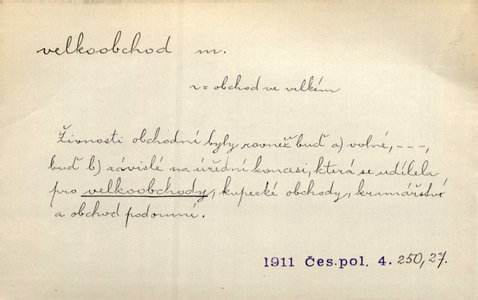 velkoobchod m.
v = obchod ve velkém
Živnosti obchodní byly rovněž buď a) volné, - - -,
buď b) závislé na úřední koncesi, která se udílela
pro velkoobchody, kupecké obchody, kramářství
a obchod podomní.
1911 Čes. pol. 4. 250, 27.